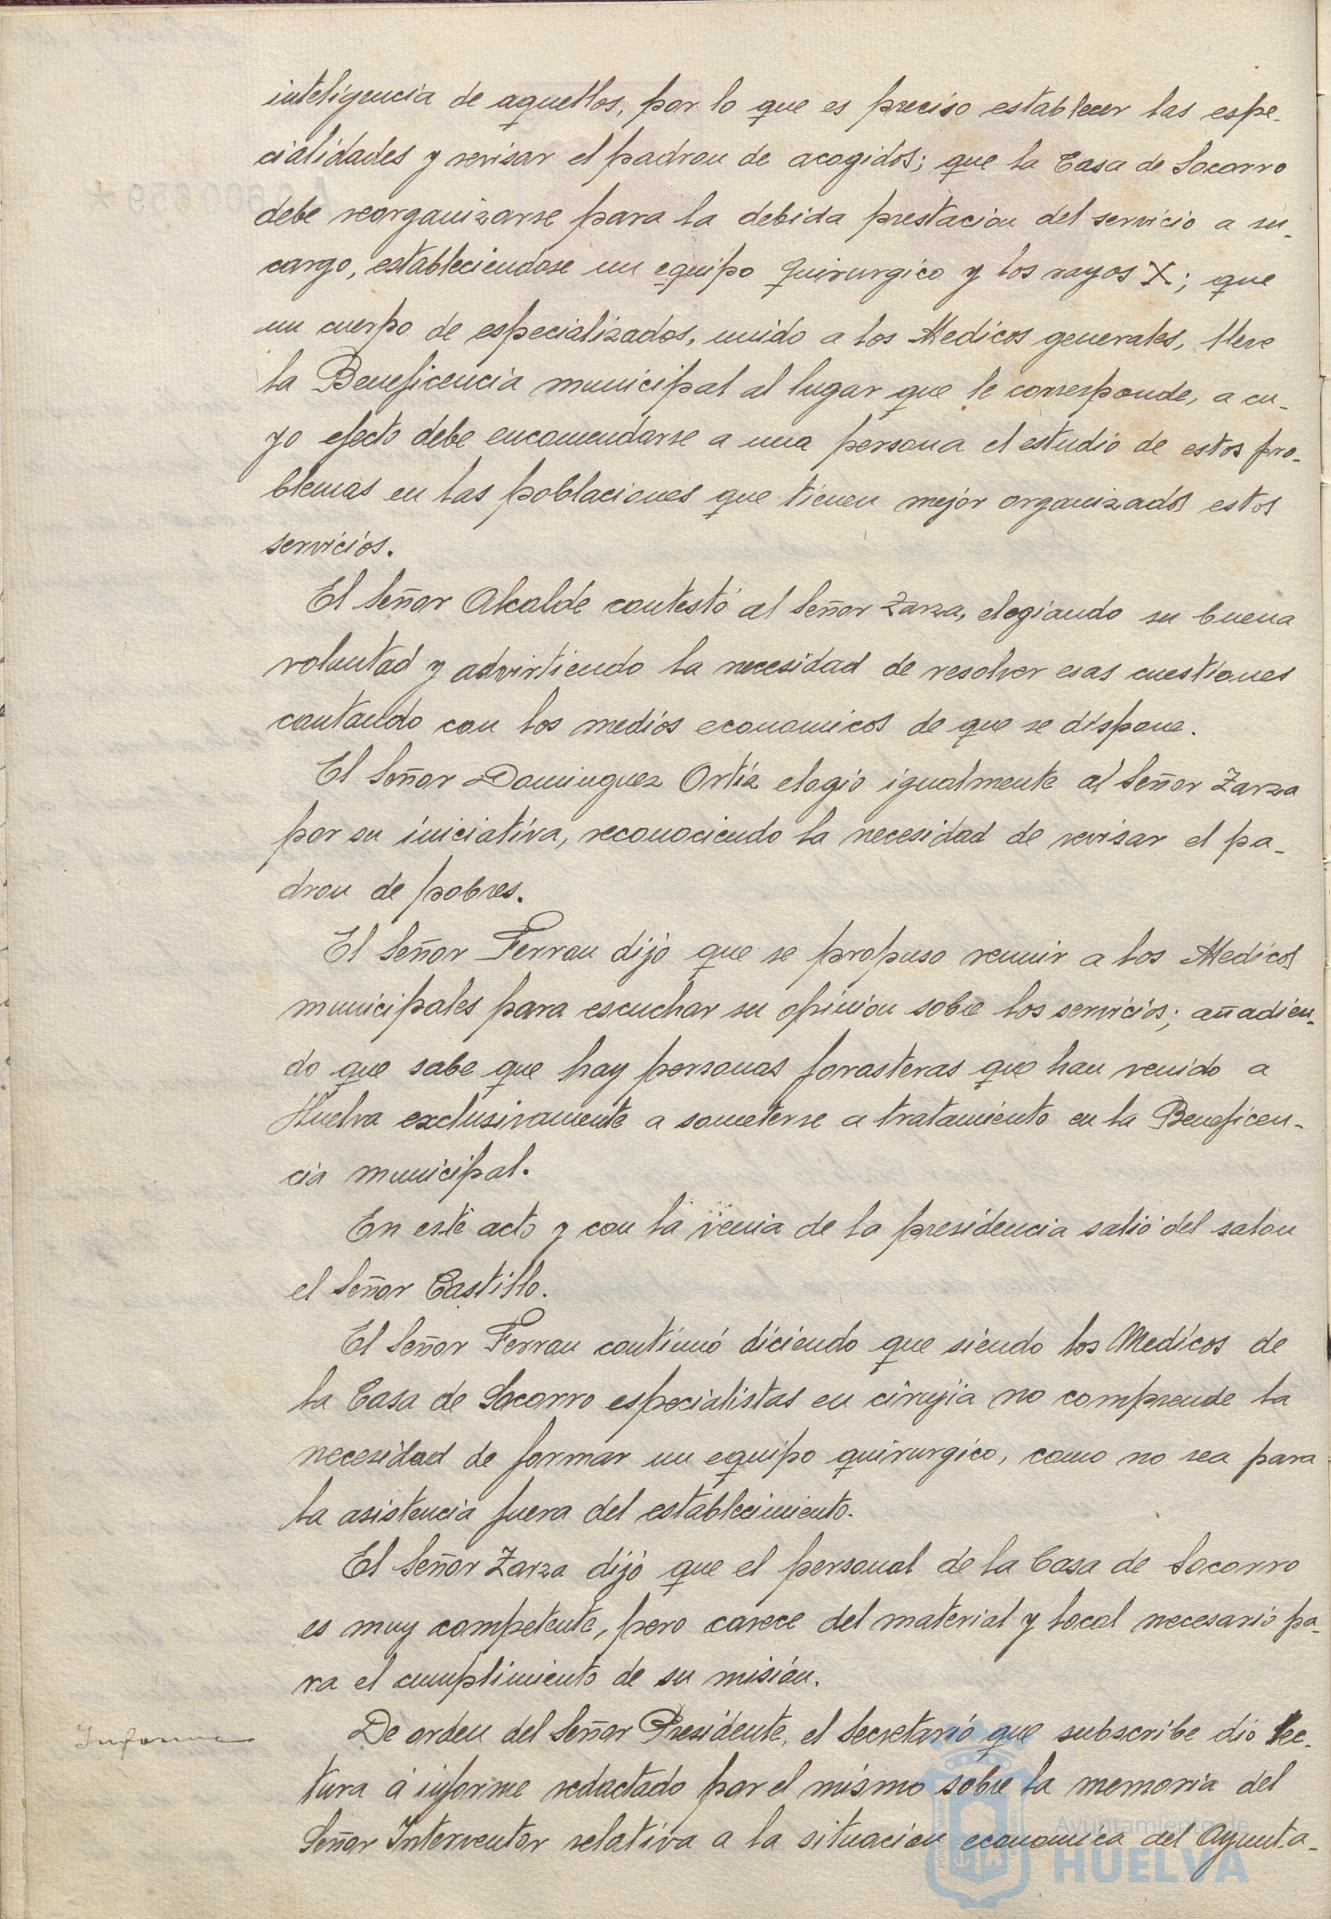 inteligencia de aquellos, por lo que es preciso establecer las espe-
cialidades y revisar el padron de acogidos; que la Casa de Socorro
debe reorganizarse para la debida prestacion del servicio a su
cargo, estableciendose un equipo quirurgico y los rayos X; que
un cuerpo de especializados, unido a los Medicos generales, lleve
la Beneficencia municipal al lugar que le corresponde, a cu-
yo efecto debe encomendarse a una persona el estudio de estos pro-
blemas en las poblaciones que tienen mejor organizados estos
servicios.
El Señor Alcalde contestó al Señor Zarza, elogiando su buena
voluntad y advirtiendo la necesidad de resolver esas cuestiones
contando con los medios economicos de que se dispone.
El Señor Dominguez Ortiz elogio igualmente al Señor Zarza
por su iniciativa, reconociendo la necesidad de revisar el pa-
dron de pobres.
El Señor Ferran dijo que se propuso reunir a los Medicos
municipales para escuchar su opinion sobre los servicios; añadien-
do que sabe que hay personas forasteras que han venido a
Huelva exclusivamente a someterse a tratamiento en la Beneficen-
cia municipal.
En este acto y con la venia de la presidencia salió del salon
el Señor Castillo.
El Señor Ferran continuó diciendo que siendo los Medicos de
la Casa de Socorro especialistas en cirujia no comprende la
necesidad de formar un equipo quirurgico, como no sea para
la asistencia fuera del establecimiento.
El Señor Zarza dijo que el personal de la Casa de Socorro
es muy competente, pero carece del material y local necesario pa-
ra el cumplimiento de su misión.
Informe
De orden del Señor Presidente, el Secretario que subscribe dio lec-
tura á informe redactado por el mismo sobre la memoria del
Señor Interventor relativa a la situacion economica del Ayunta-
Ayuntamiento de
HUELVA